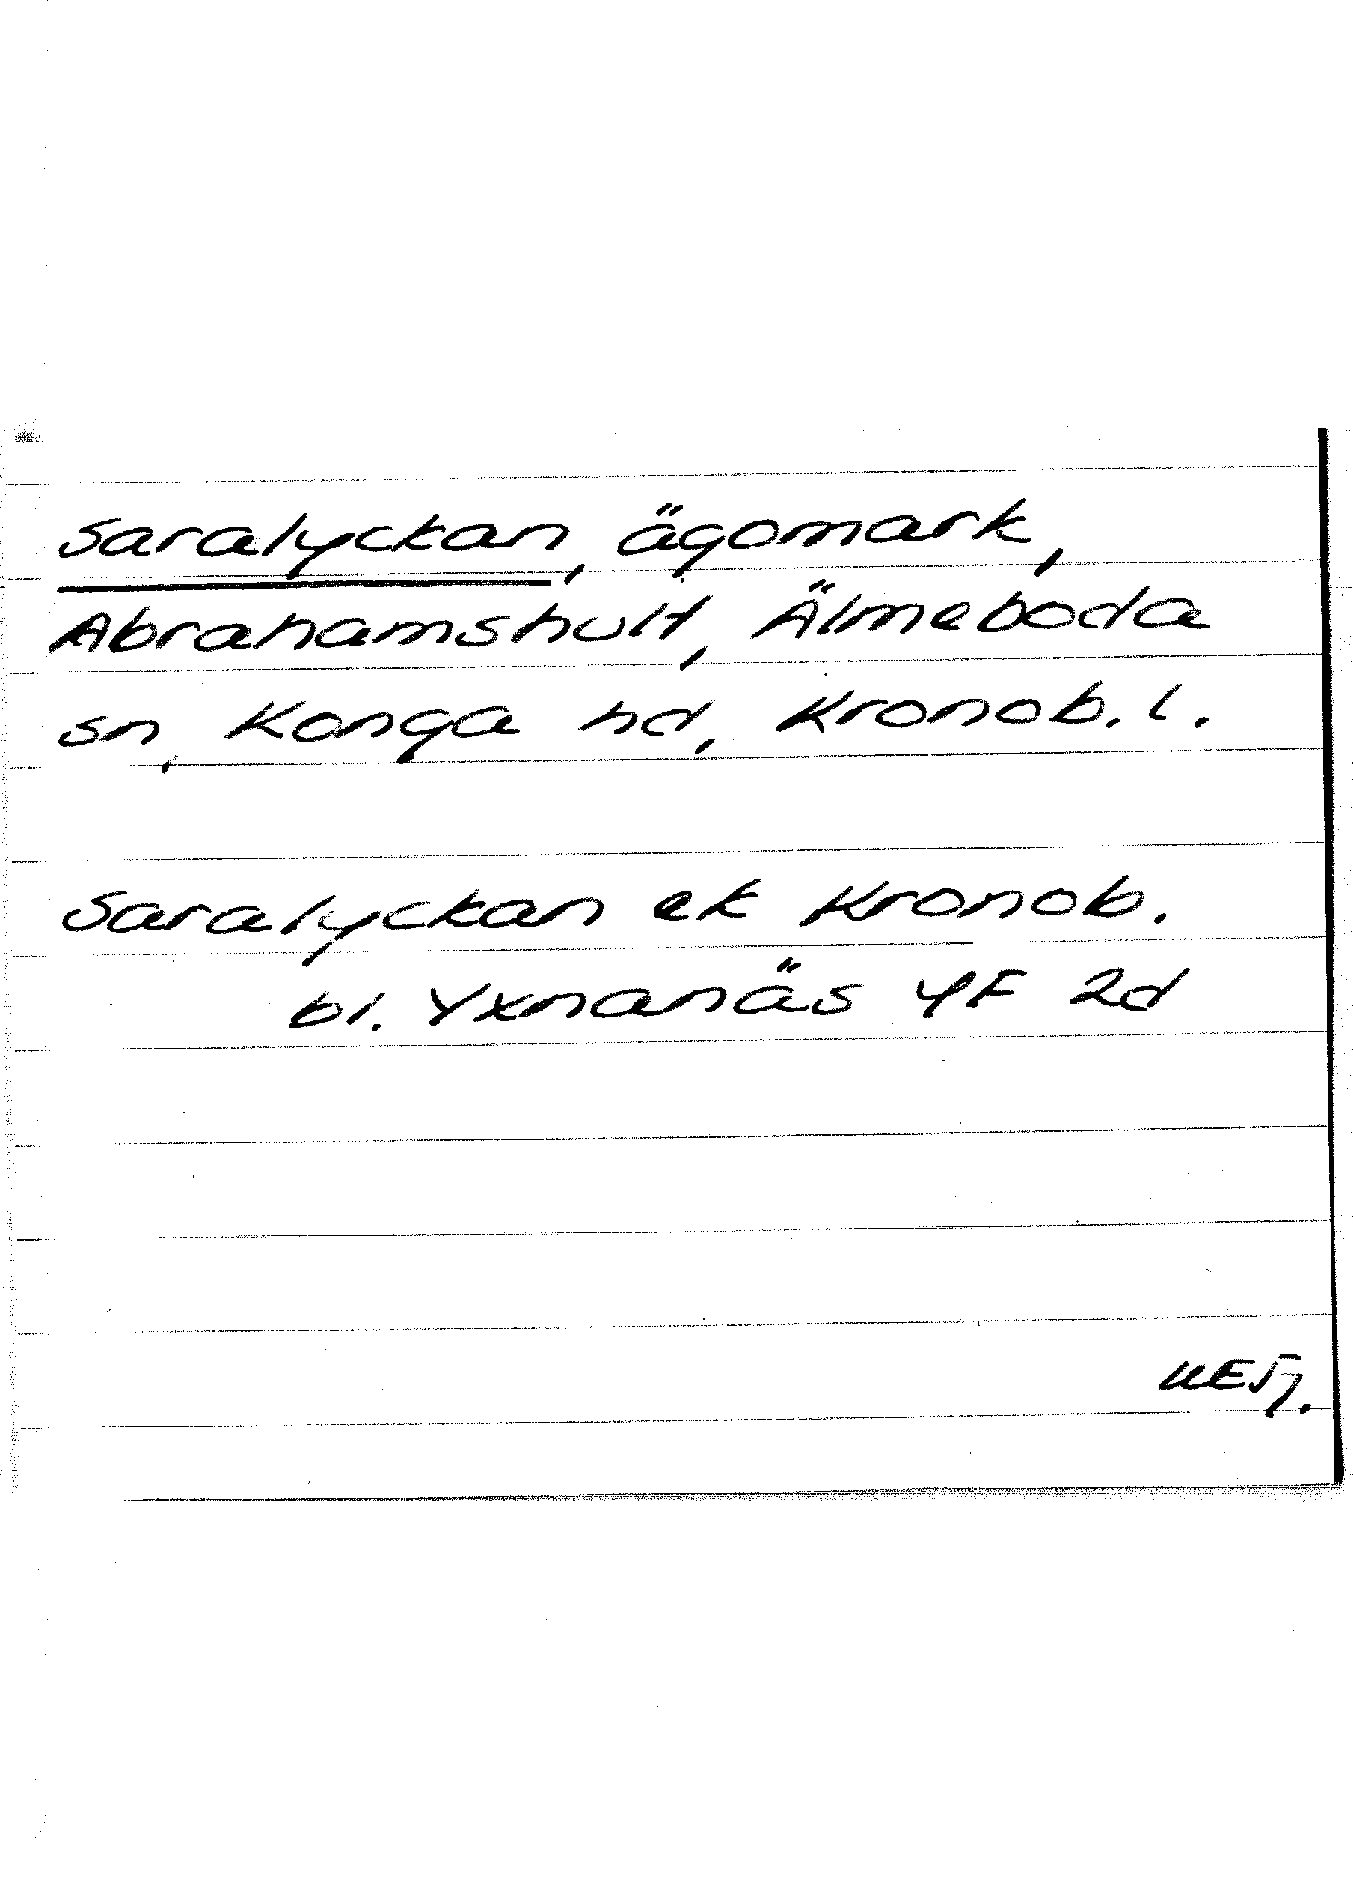 Saralyckan, ägomark,
Abrahamshult, Älmeboda
sn, Konga hd, Kronob. l.
Saralyckan ek Kronob.
bl. Yxnanäs 4F 2d